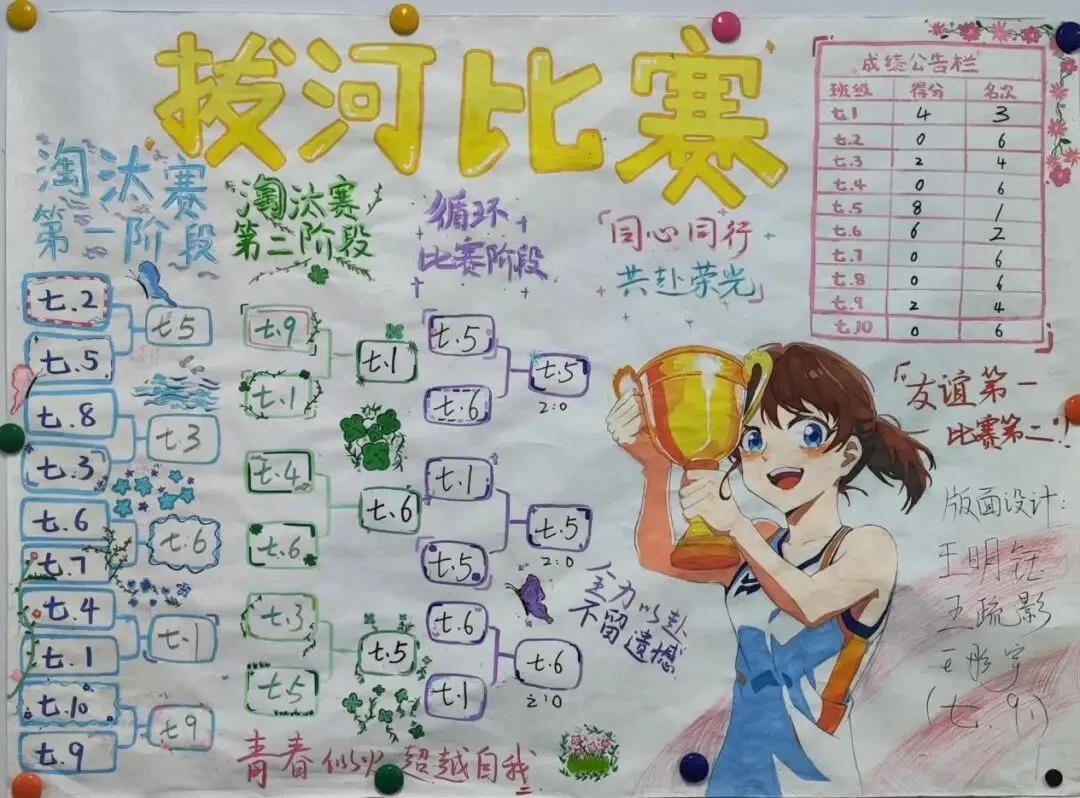 拔河比赛
淘汰赛
第一阶段
七.2
七.5
七5
七.8
七.3
七.3
七.6
七.7
七.6
七.4
七.1
七.1
七.10
七.9
七9
淘汰赛
第二阶段
七.9
七.1
七.1
七.4
七.6
七.6
七.3
七5
七.5
循环
比赛阶段
七.5
七.6
七.5
2:0
七.1
七.5
七.5
2:0
七.6
七.1
七.6
2:0
「同心同行
共赴荣光」
成绩公告栏
班级 得分 名次
七.1 4 3
七.2 0 6
七.3 2 4
七.4 0 6
七.5 8 1
七.6 6 2
七.7 0 6
七.8 0 6
七.9 2 4
七.10 0 6
「友谊第一
比赛第二」!
全力以赴
不留遗憾
版面设计:
王明钰
王疏影
王彤宇
(七.9)
青春似火 超越自我